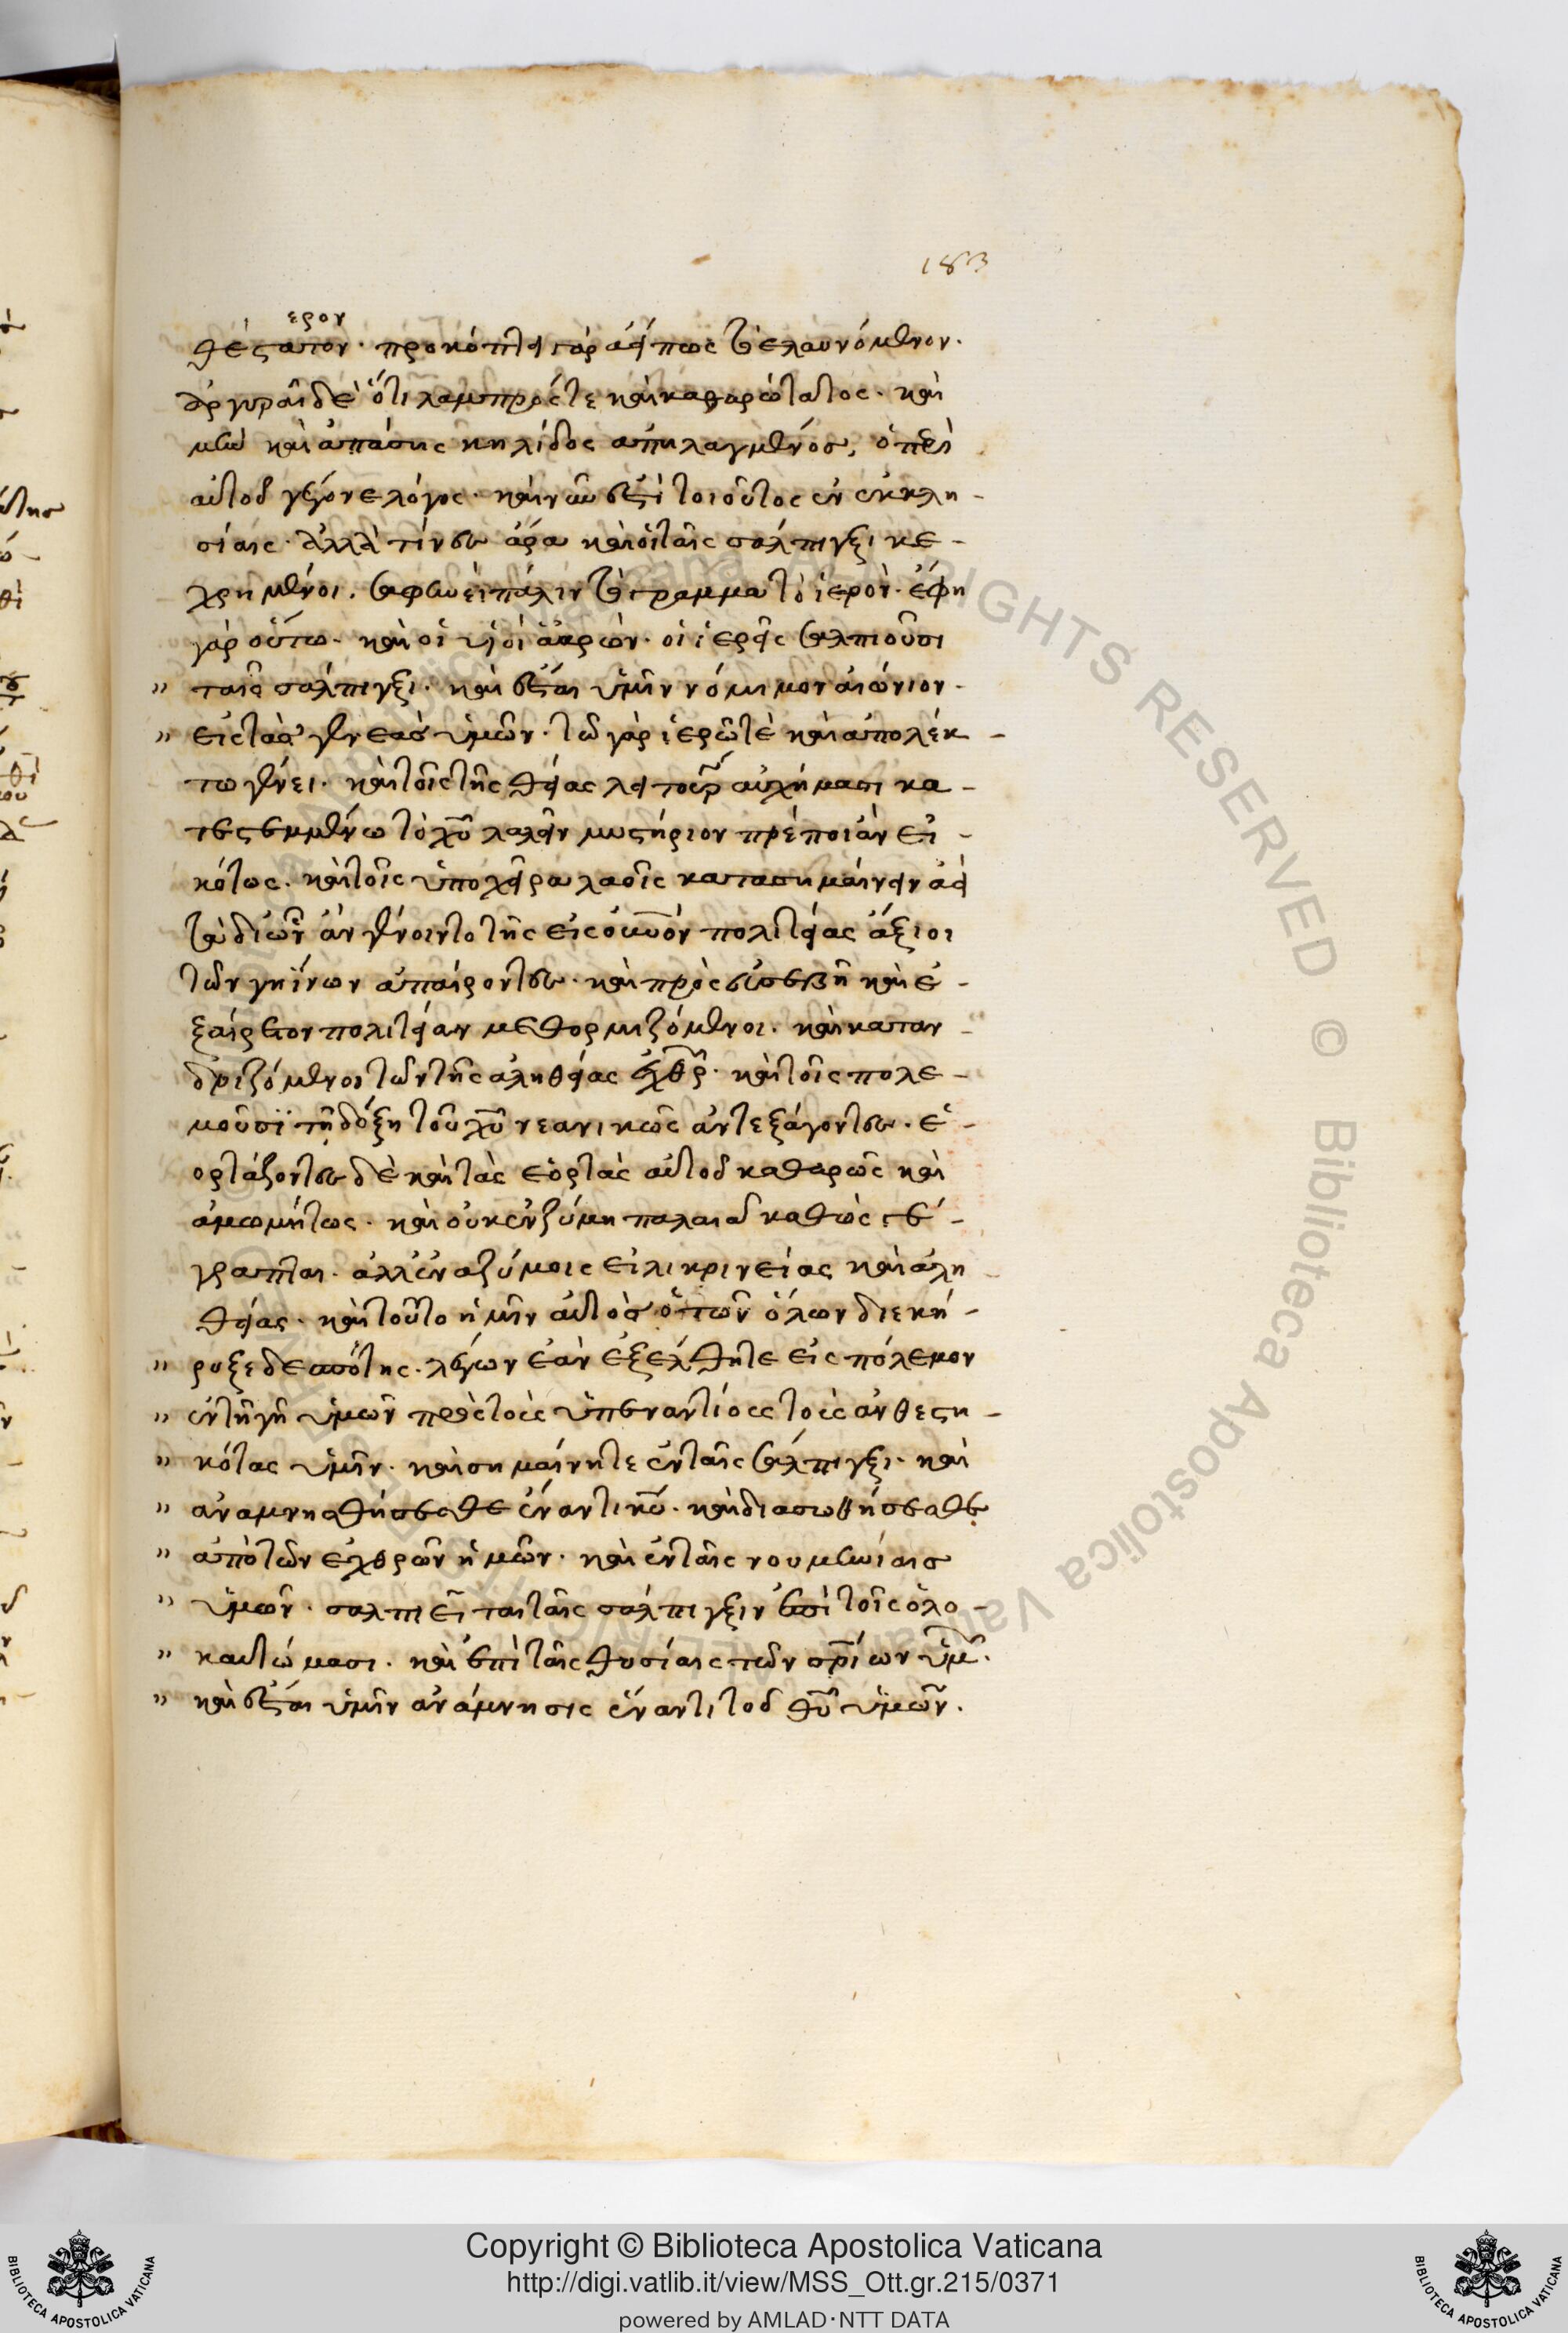 183
ερον
θέστατον. προκόπτει γὰρ ἀεί πως τὸ ἐλαυνόμενον.
ἀργυραῖ δὲ ὅτι λαμπρός τε καὶ καθαρώτατος. καὶ
μὴν καὶ ἁπάσης κηλίδος ἀπηλαγμένος, ὁ περὶ
αὐτοῦ γέγονε λόγος. καὶ νῦν ἐστὶ τοιοῦτος ἐν ἐκκλη-
σίαις. ἀλλὰ τίνες ἄρα καὶ οἱ ταῖς σάλπιγξι κε-
χρημένοι, σαφηνιεῖ πάλιν τὸ γράμμα τὸ ἱερόν. ἔφη
γὰρ οὕτω. καὶ οἱ υἱοὶ ἀαρών. οἱ ἱερεῖς σαλπιοῦσι
" ταῖς σάλπιγξι. καὶ ἔσται ὑμῖν νόμιμον αἰώνιον.
" εἰς τὰς γενεὰς ὑμῶν. τῶ γὰρ ἱερῶ τὲ καὶ ἀπολέκ-
τω γένει. καὶ τοῖς τῆς θείας λειτουρ αὐχήμασι κα-
τεστεμμένω τὸ χυ λαλεῖν μυστήριον πρέποι ἂν εἰ-
κότως. καὶ τοῖς ὑπὸ χεῖρα λαοῖς κατασημαίνειν ἀεὶ
τὰ δι ὧν ἂν γένοιντο τῆς εἰς οὐνὸν πολιτείας ἄξιοι
τῶν γηΐνων ἀπαίροντες. καὶ πρὸς εὐσεβῆ καὶ ἐ-
ξαίρετον πολιτείαν μεθορμιζόμενοι. καὶ καταν-
δριζόμενοι τῶν τῆς ἀληθείας ἐχθρ. καὶ τοῖς πολε-
μοῦσϊ τῇ δόξῃ τοῦ χυ νεανικῶς ἀντεξάγοντες. ἑ-
ορτάζοντες δὲ καὶ τὰς ἑορτὰς αὐτοῦ καθαρῶς καὶ
ἀμωμήτως. καὶ οὐκ ἐν ζύμη παλαιᾶ καθὼς γέ-
γραπται. ἀλλ ἐν ἀζύμοις εἰλικρινείας καὶ ἀλη
θείας. καὶ τοῦτο ἡμῖν αὐτὸς ὁ τῶν ὅλων διεκή-
" ρυξε δεσπότης. λέγων ἐὰν ἐξέλθητε εἰς πόλεμον
" ἐν τῆ γῆ ὑμῶν πρὸς τοὺς ὑπεναντίους τοὺς ἀνθεστη-
" κότας ὑμῖν. καὶ σημαίνητε ἐν ταῖς σάλπιγξι. καὶ
" ἀναμνησθήσεσθε ἔναντι κυ. καὶ διασωθήσεσθε
" ἀπὸ τῶν ἐχθρῶν ἡμῶν. καὶ ἐν ταῖς νουμηνίαις
" ὑμῶν. σαλπιεῖται ταῖς σάλπιγξιν ἐπὶ τοῖς ὁλο-
" καυτώμασι. καὶ ἐπὶ ταῖς θυσίαις τῶν σρίων ὑμ.
" καὶ ἔσται ὑμῖν ἀνάμνησις ἔναντι τοῦ θυ ὑμῶν.
RIGHTS RESERVED © Biblioteca Apostolica Vaticana
Copyright © Biblioteca Apostolica Vaticana
http://digi.vatlib.it/view/MSS_Ott.gr.215/0371
powered by AMLAD·NTT DATA
BIBLIOTECA APOSTOLICA VATICANA
BIBLIOTECA APOSTOLICA VATICANA